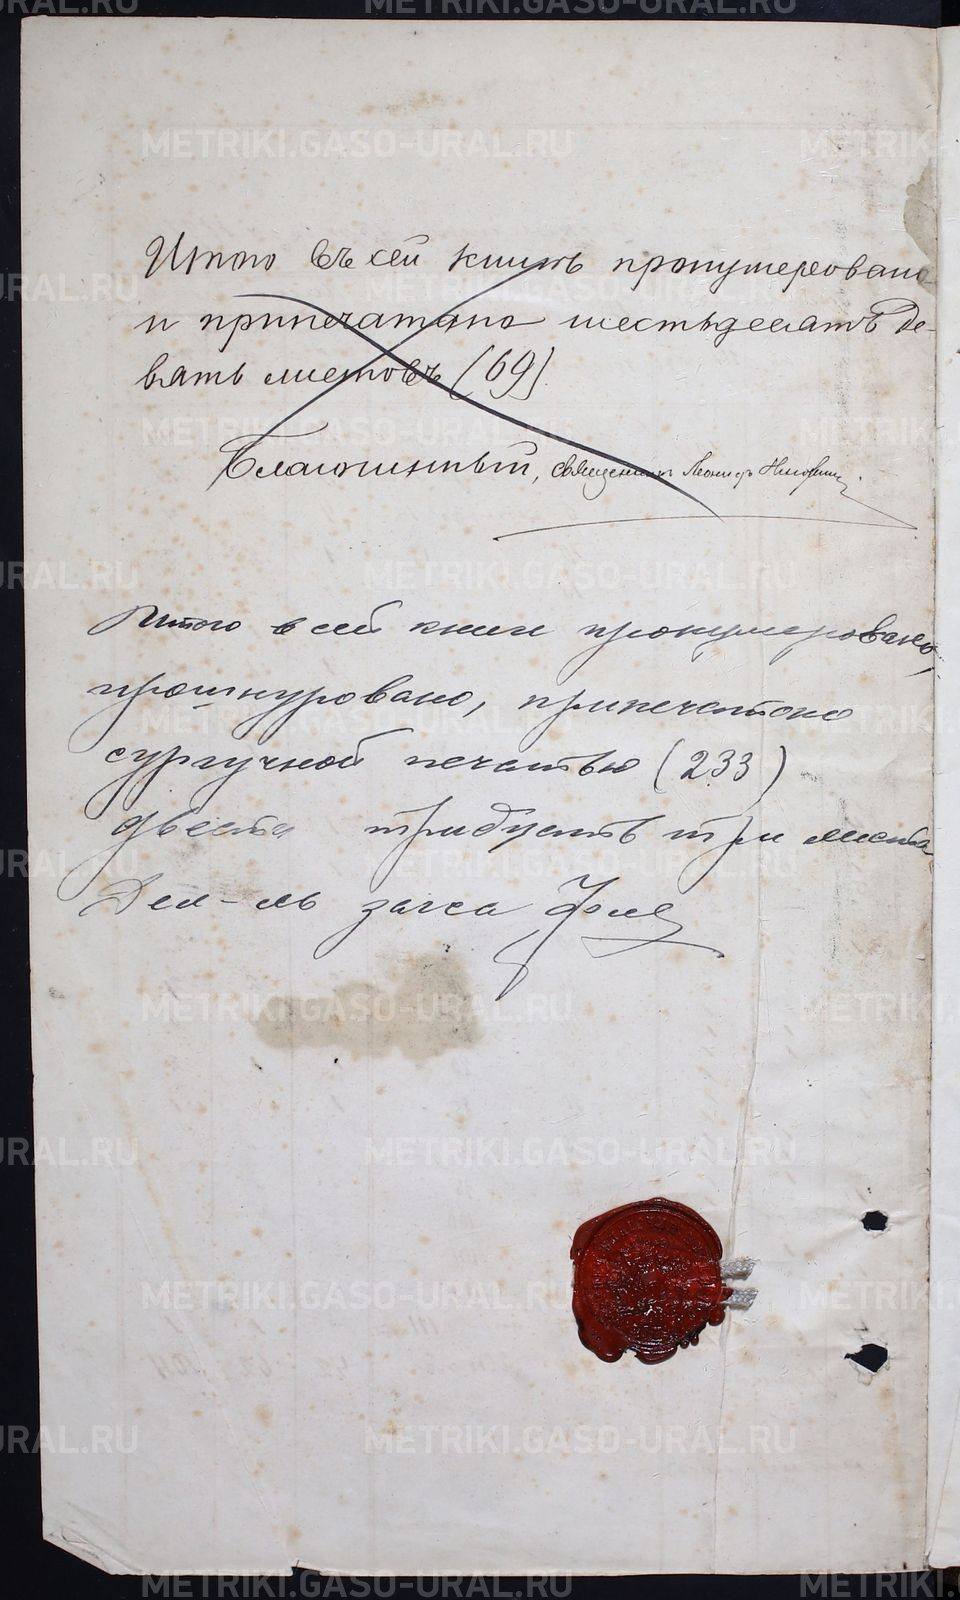 Итого въ сей книгѣ пронумеровано
и припечатано шестьдесятъ де-
вять листовъ (69).
Благочинный, священникъ Леонидъ
Итого в сей книге пронумеровано,
прошнуровано, припечатано
сургучной печатью (233)
двести тридцать три листа
Дел-ль загса
METRIKI.GASO-URAL.RU